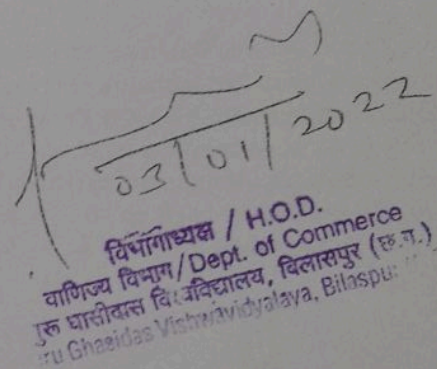 03/01/2022
विभागाध्यक्ष / H.O.D.
वाणिज्य विभाग/Dept. of Commerce
गुरू घासीदास विश्वविद्यालय, बिलासपुर (छ.ग.)
Ghasidas Vishwavidyalaya, Bilaspur